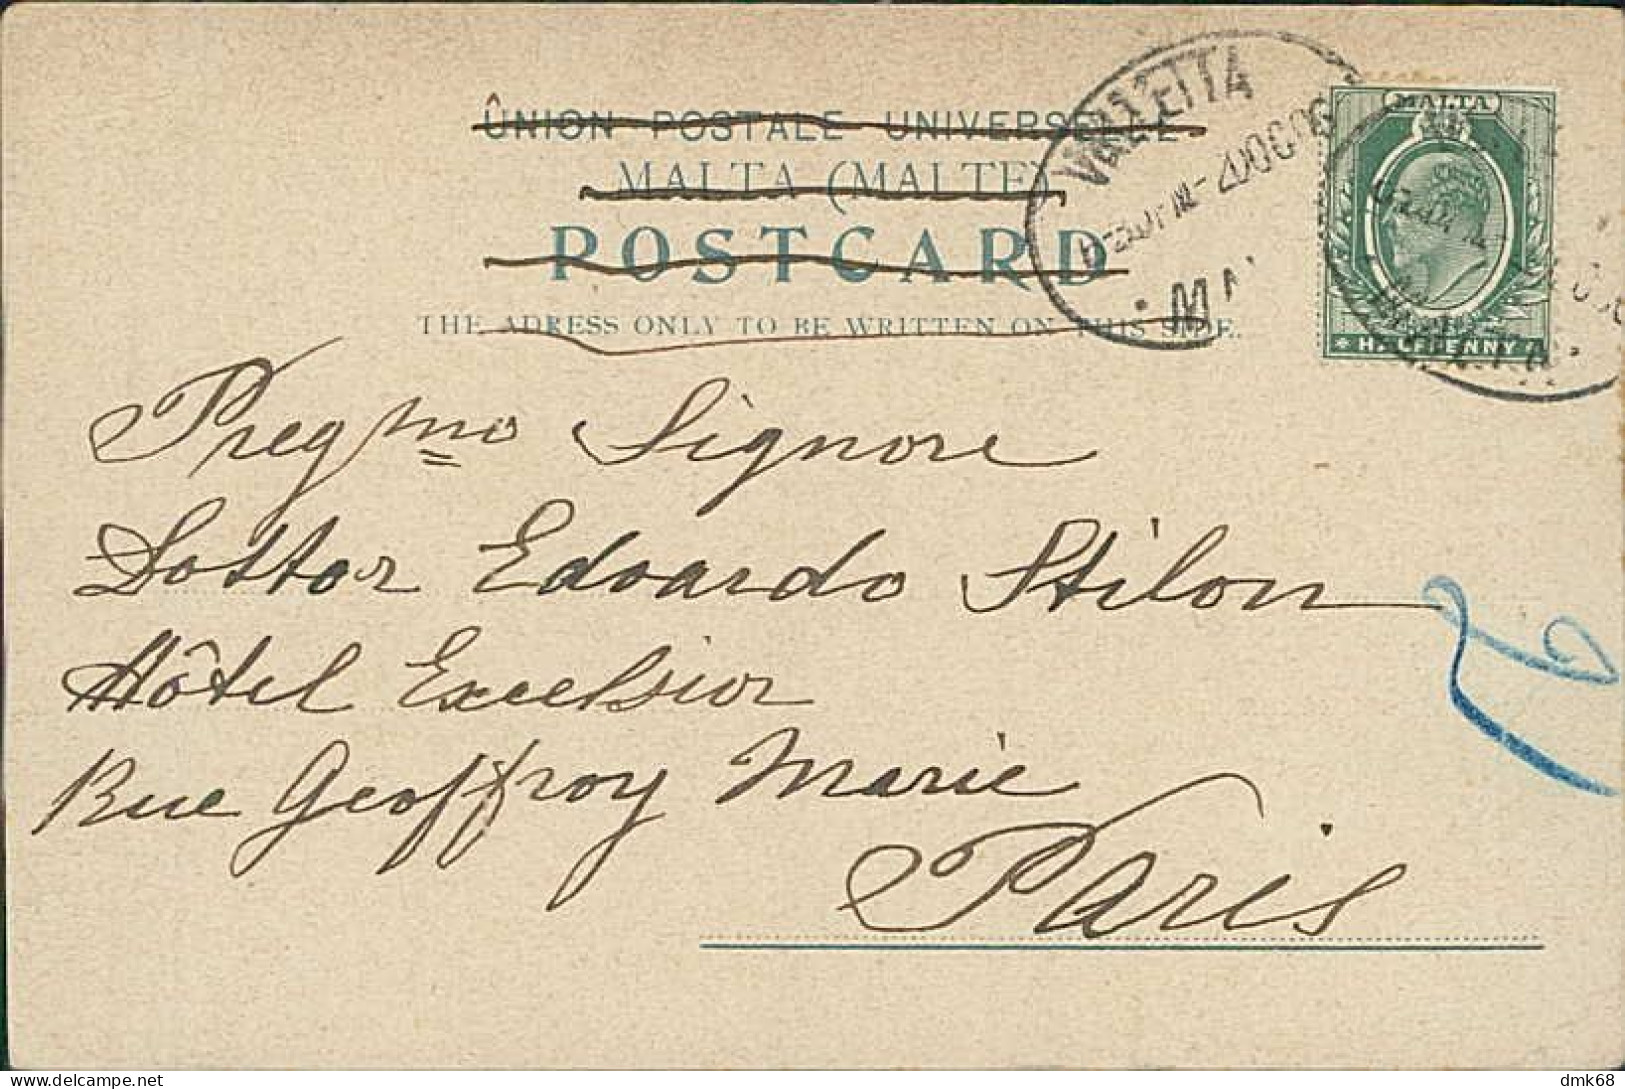 ÛNION POSTALE UNIVERSELLE
MALTA (MALTE)
POSTCARD
THE ADRESS ONLY TO BE WRITTEN ON THIS SIDE.
VALLETTA
MALTA
HALFPENNY
Pregmo Signore
Dottor Edoardo Stilon
Hôtel Excelsior
Rue Geoffroy Marie
Paris
dmk68